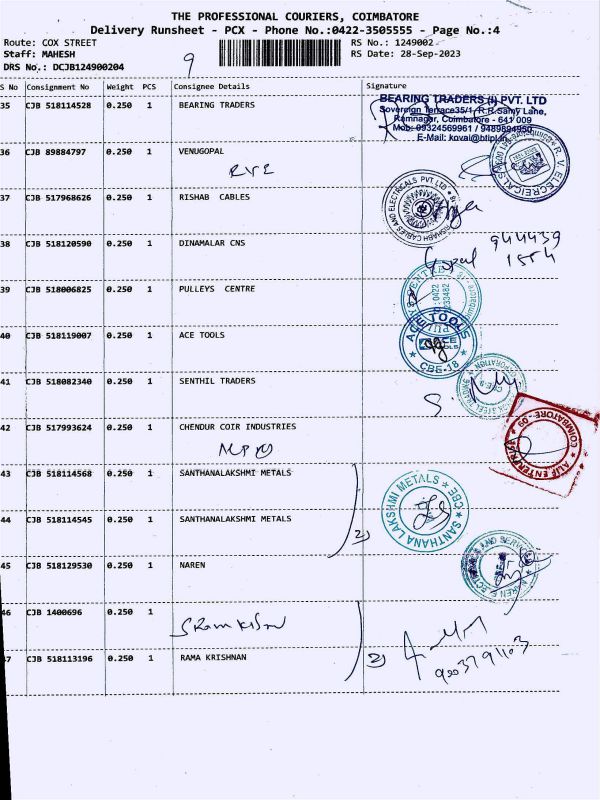 THE PROFESSIONAL COURIERS, COIMBATORE
Delivery Runsheet - PCX - Phone No.:0422-3505555 - Page No.:4
Route: COX STREET RS No.: 1249002
Staff: MAHESH RS Date: 28-Sep-2023
DRS No.: DCJB124900204 9
S No Consignment No Weight PCS Consignee Details Signature
35 CJB 518114528 0.250 1 BEARING TRADERS
BEARING TRADERS (I) PVT. LTD
Sovereign Terrace35/1, R.R.Samy Lane,
Ramnagar, Coimbatore - 641 009
Mob: 09324569961 / 9489894950
E-Mail: koval@btipl.in
36 CJB 89884797 0.250 1 VENUGOPAL
RVE
R. V. ELECREICKS
37 CJB 517968626 0.250 1 RISHAB CABLES
RISHABH CABLES AND ELECTRICALS PVT LTD
38 CJB 518120590 0.250 1 DINAMALAR CNS
Gopal 944439
1554
39 CJB 518006825 0.250 1 PULLEYS CENTRE
40 CJB 518119007 0.250 1 ACE TOOLS
ACE TOOLS
CBE-18
41 CJB 518082340 0.250 1 SENTHIL TRADERS
42 CJB 517993624 0.250 1 CHENDUR COIR INDUSTRIES
COIMBATORE - 09
ALIF ENTERPRISES
43 CJB 518114568 0.250 1 SANTHANALAKSHMI METALS
44 CJB 518114545 0.250 1 SANTHANALAKSHMI METALS
2)
SANTHANA LAKSHMI METALS CBE
45 CJB 518129530 0.250 1 NAREN
46 CJB 1400696 0.250 1
47 CJB 518113196 0.250 1 RAMA KRISHNAN
2)
9003791103